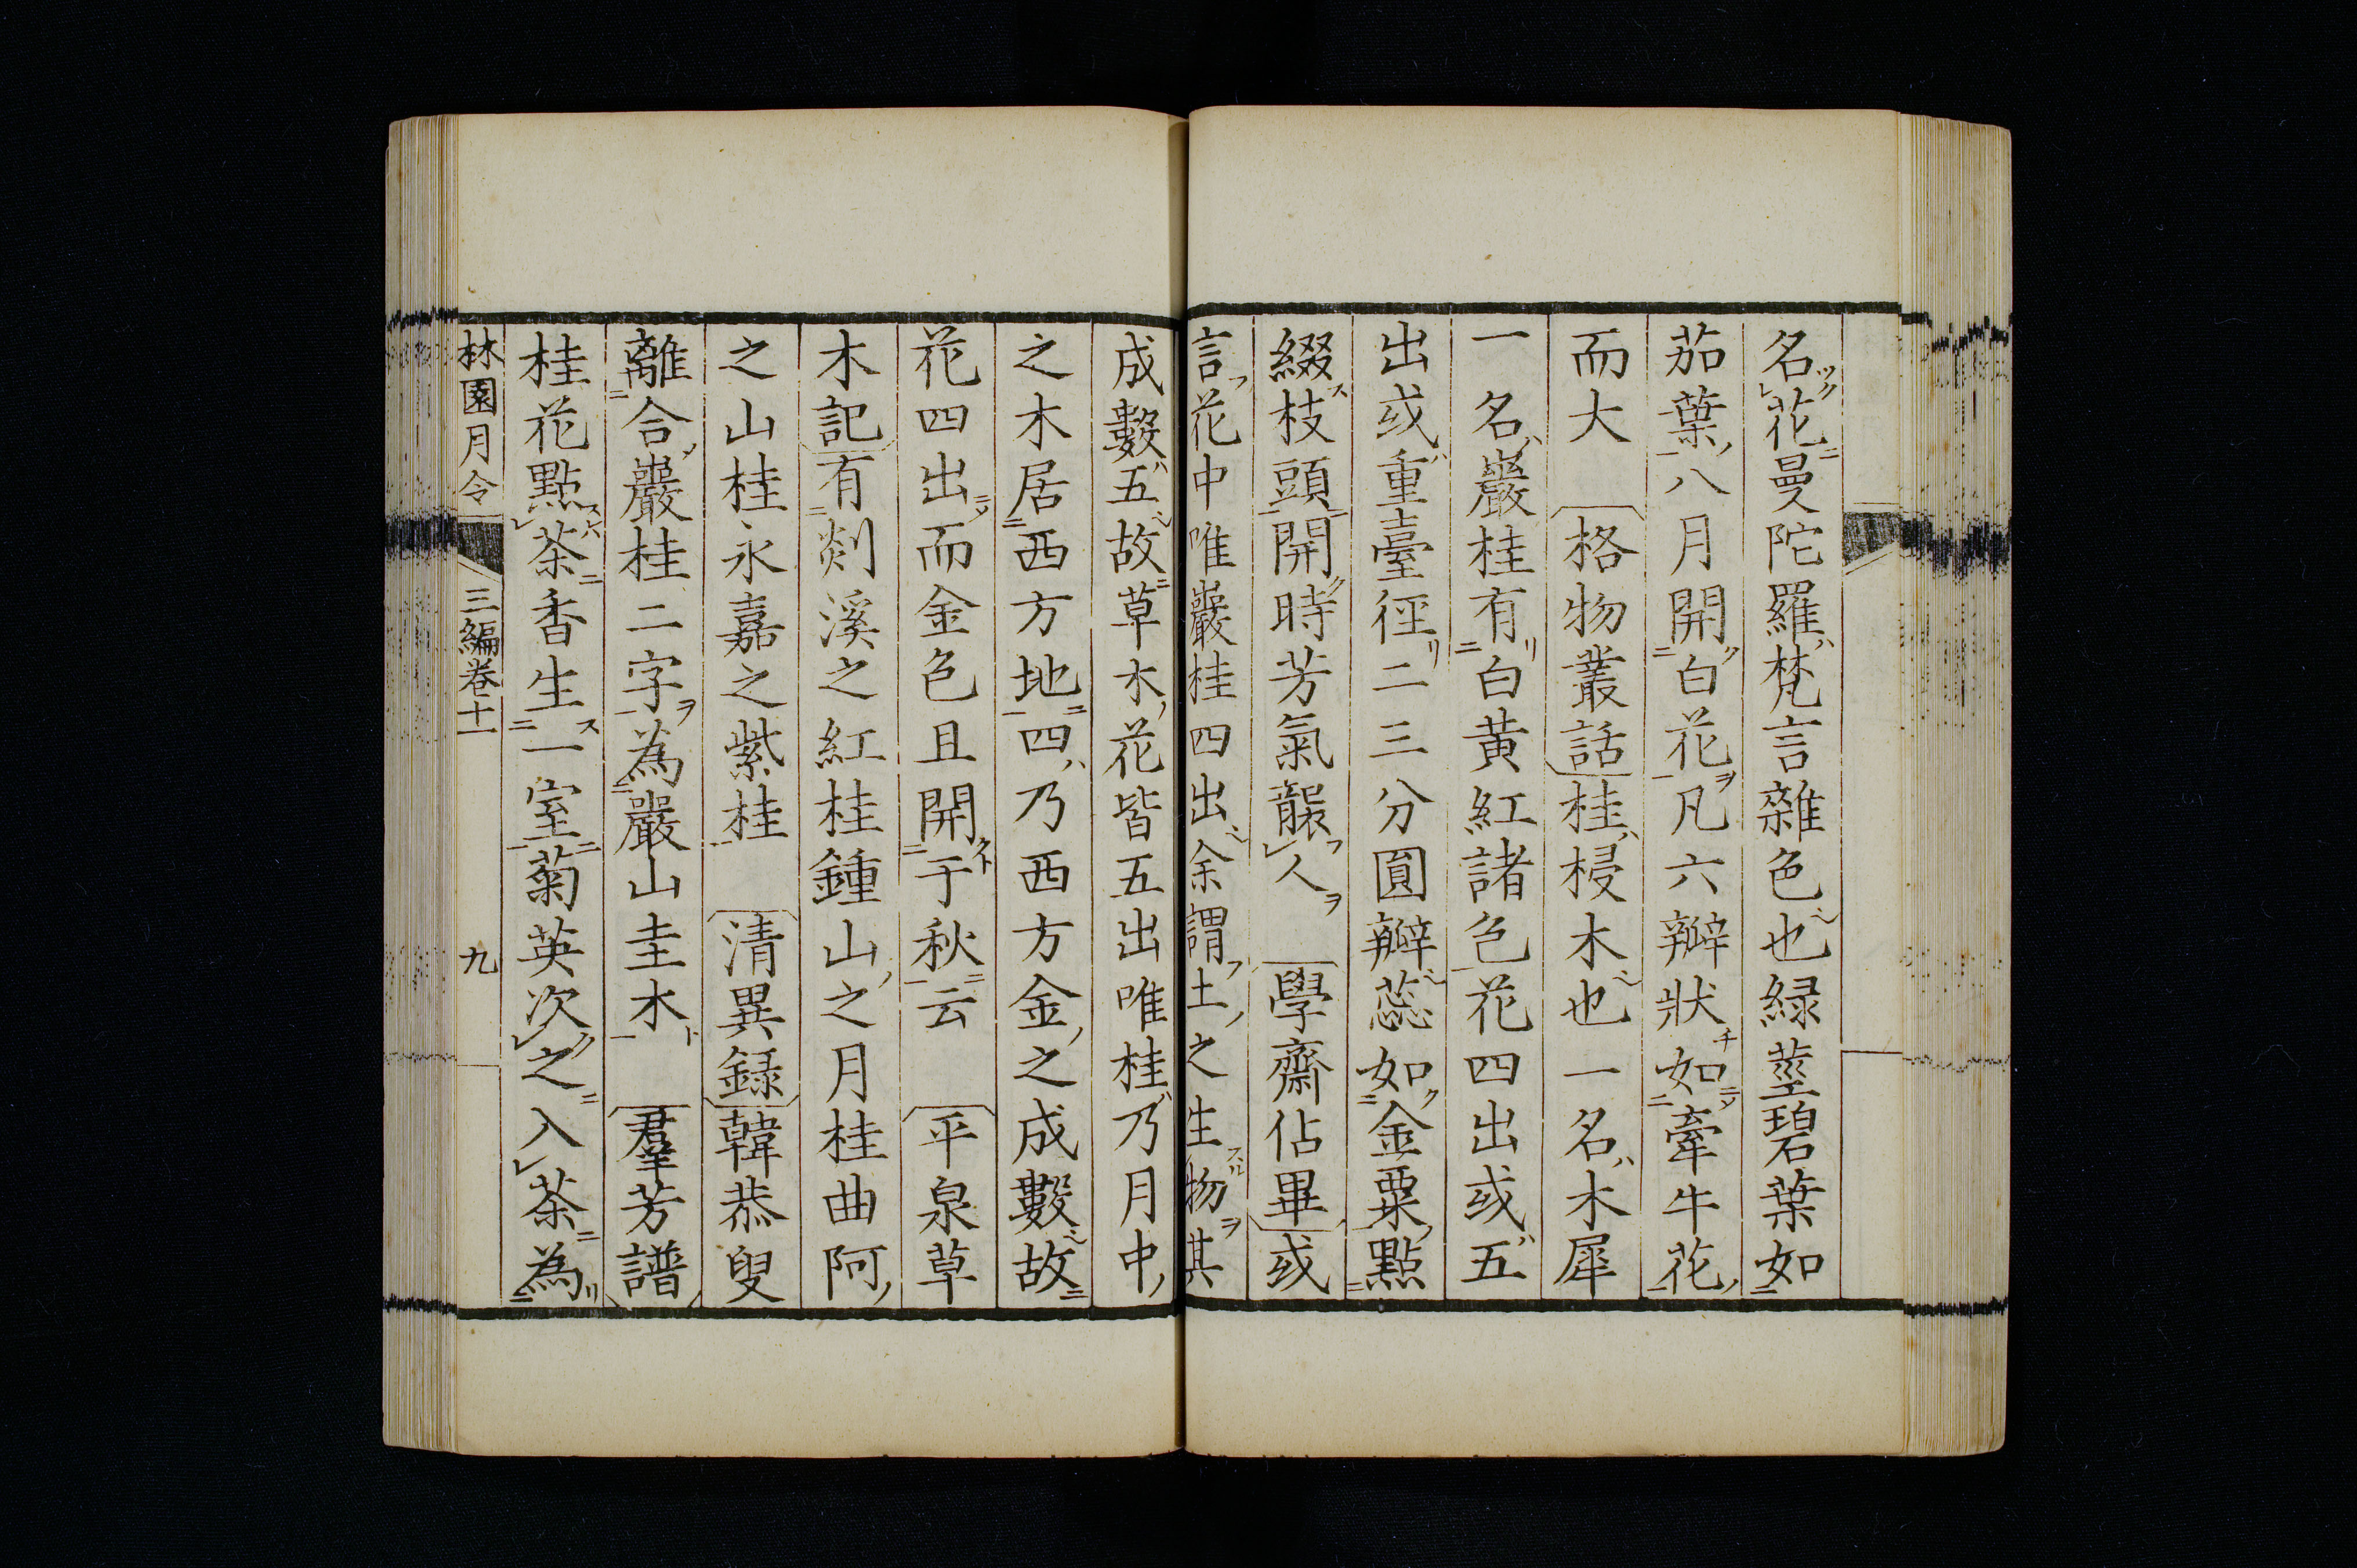 名花曼陀羅梵言雜色也緑莖碧葉如
茄葉八月開白花凡六瓣狀如牽牛花
而大 格物叢話桂梫木也一名木犀
一名巖桂有白黄紅諸色花四出或五
出或重臺徑二三分圓瓣蕊如金粟點
綴枝頭開時芳氣襲人 學齋佔畢或
言花中唯巖桂四出余謂土之生物其
成數五故草木花皆五出唯桂乃月中
之木居西方地四乃西方金之成數故
花四出而金色且開于秋云 平泉草
木記有剡溪之紅桂鍾山之月桂曲阿
之山桂永嘉之紫桂 清異録韓恭叟
離合巖桂二字為巖山圭木 羣芳譜
桂花點茶香生一室菊英次之入茶為
林園月令 三編卷十一 九